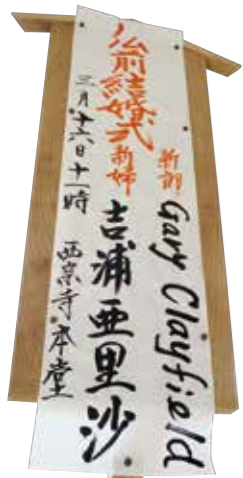 仏前結婚式
新郎 Gary Clayfield
新婦 吉浦亜里沙
三月十六日十一時 西宗寺本堂